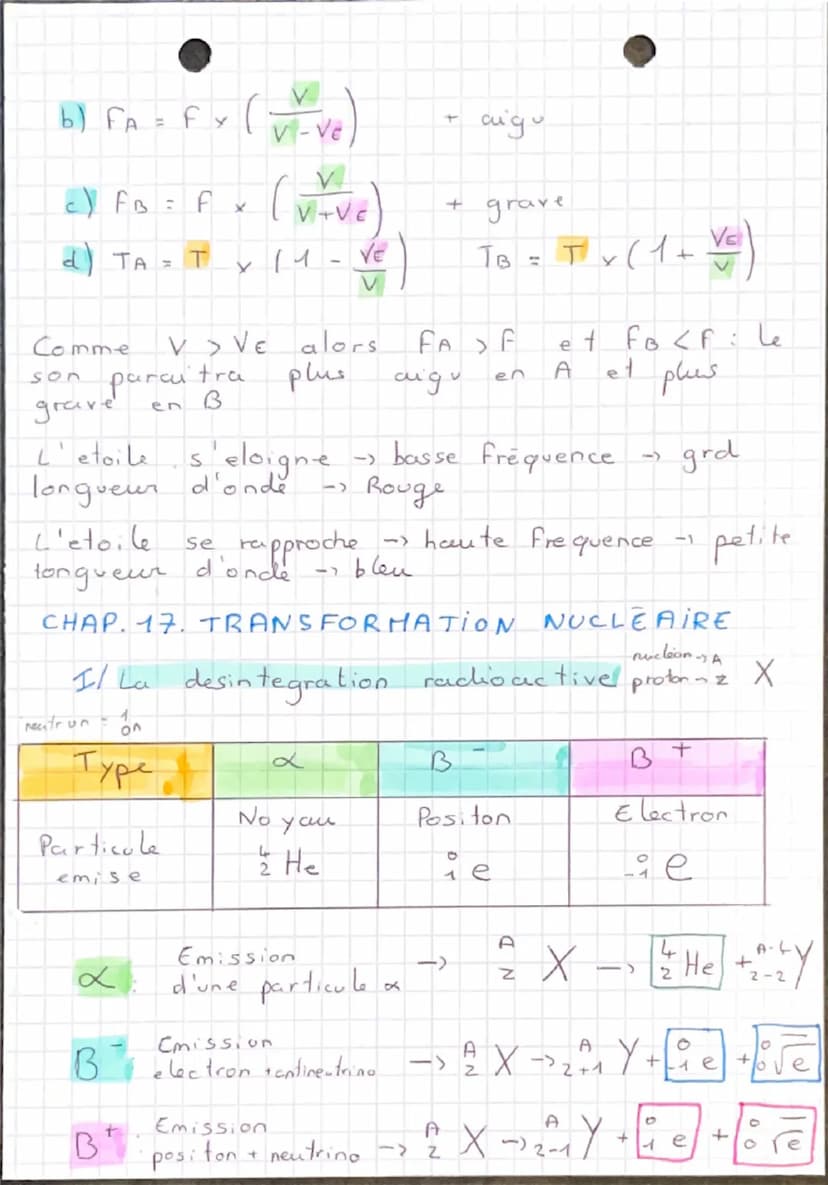 b) FA = F x (V / V-VE) + aigu
c) FB = F x (V / V+VE) + grave
d) TA = T x (1 - VE/V) TB = T x (1 + VE/V)
Comme V > VE alors FA > F et FB < F : le
son paraitra plus aigu en A et plus
grave en B
L'etoile s'eloigne -> basse fréquence -> grd
longueur d'onde -> Rouge
L'etoile se rapproche -> haute frequence -> petite
longueur d'onde -> bleu
CHAP. 17. TRANSFORMATION NUCLÉAIRE
I/ La desintegration radioactive nucléon -> A proton -> Z X
neutron = ¹₀n
Type α B⁻ B⁺
Particule emise Noyau ⁴₂He Positon ⁰₁e Electron ⁰₋₁e
α : Emission d'une particule α -> ᴬ_Z X -> ⁴₂He + ᴬ⁻⁴_Z-2 Y
B⁻ Emission electron + antineutrino -> ᴬ_Z X -> ᴬ_Z+1 Y + ⁰₋₁e + ⁰₀v̅e
B⁺ . Emission positon + neutrino -> ᴬ_Z X -> ᴬ_Z-1 Y + ⁰₁e + ⁰₀v̅e